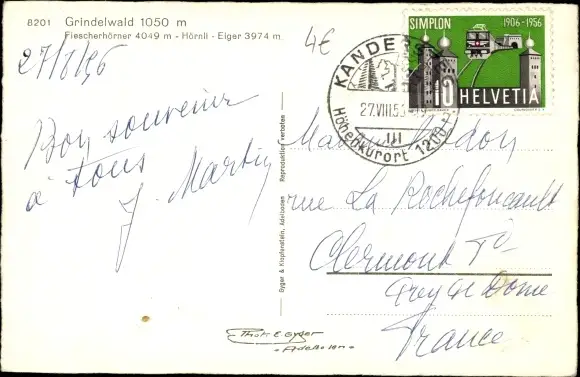 8201 Grindelwald 1050 m
Fiescherhörner 4049 m - Hörnli - Eiger 3974 m
4€
27/8/56
Bon souvenir
à tous
J. Martin
Gyger & Klopfenstein, Adelboden Reproduktion verboten
SIMPLON 1906-1956
10 HELVETIA
KANDE
27.VIII.56
Höhenkurort 1200 m
rue La Rochefoucault
Clermont Fd
Puy de Dome
France
Phot. E. Gyger
Adelboden